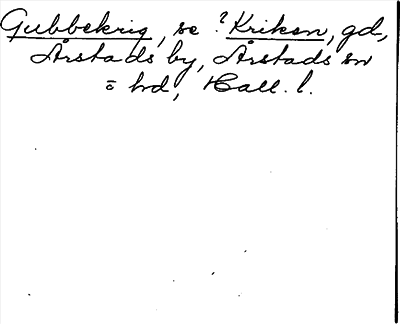 Gubbekrig, se ? Kriken, gd,
Årstads by, Årstads sn
o hd, Hall. l.